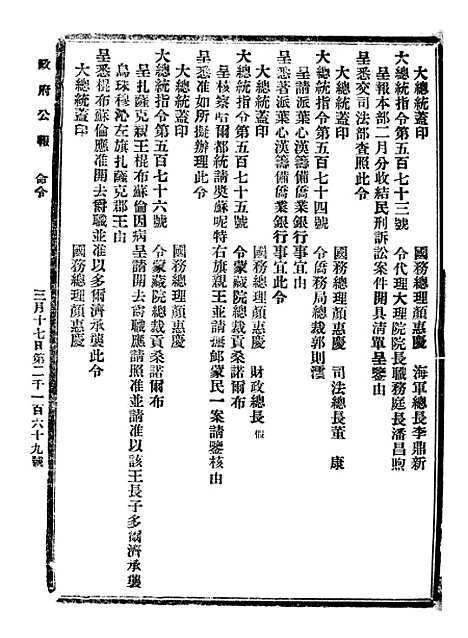 大總統蓋印　國務總理顏惠慶　海軍總長李鼎新
大總統指令第五百七十三號　令代理大理院院長職務庭長潘昌煦
呈報本部二月分收結民刑訴訟案件開具清單呈鑒由
呈悉交司法部查照此令
大總統蓋印　國務總理顏惠慶　司法總長董　康
大總統指令第五百七十四號　令僑務局總裁郭則澐
呈請派葉心漢籌備僑業銀行事宜由
呈悉著派葉心漢籌備僑業銀行事宜此令
大總統蓋印　國務總理顏惠慶　財政總長假
大總統指令第五百七十五號　令蒙藏院總裁貢桑諾爾布
呈核察哈爾都統請奬蘇呢特右旗親王並請撫卹蒙民一案請鑒核由
呈悉准如所擬辦理此令
大總統蓋印　國務總理顏惠慶
大總統指令第五百七十六號　令蒙藏院總裁貢桑諾爾布
呈扎薩克親王棍布蘇倫因病呈請開去爵職應請照准並請准以該王長子多爾濟承襲
烏珠穆沁左旗扎薩克郡王由
呈悉棍布蘇倫應准開去爵職並准以多爾濟承襲此令
大總統蓋印　國務總理顏惠慶
政府公報　命令　三月十七日第二千一百六十九號